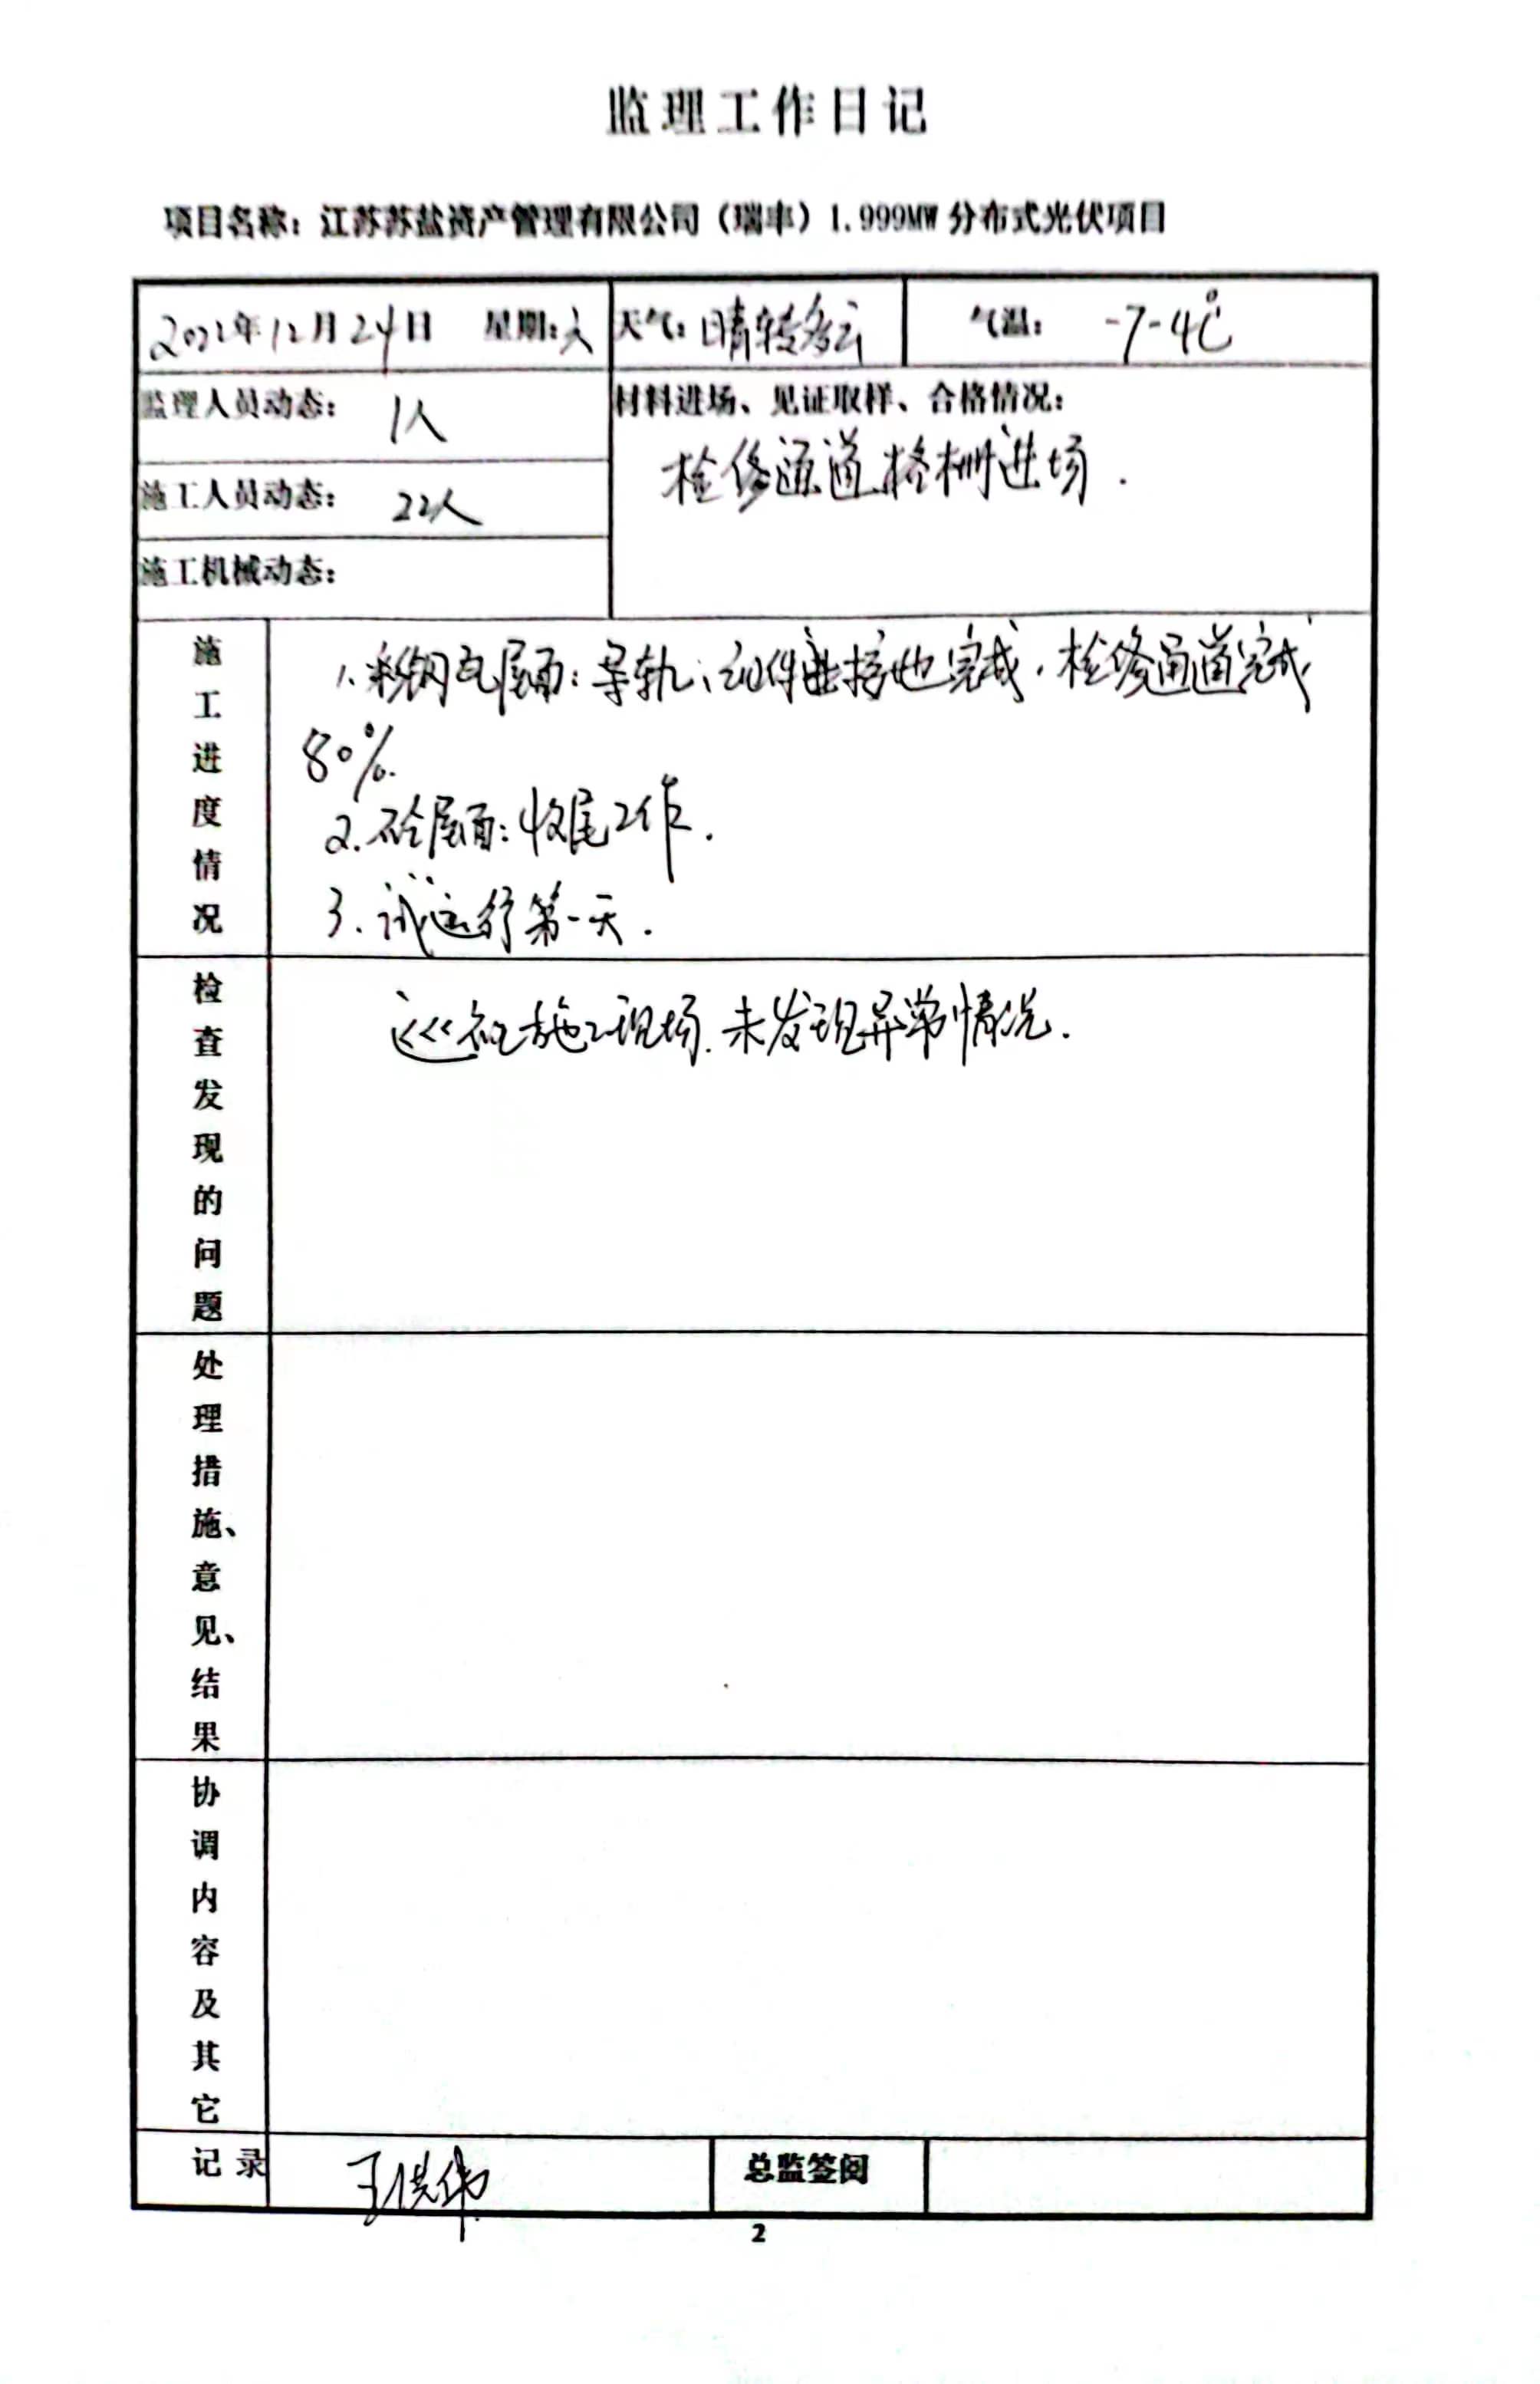 监理工作日记
项目名称：江苏苏盐资产管理有限公司（瑞丰）1.999MW分布式光伏项目
2022年12月24日 星期：六 天气：晴转多云 气温：-7-4℃
监理人员动态：1人
材料进场、见证取样、合格情况：
检修通道格栅进场.
施工人员动态：22人
施工机械动态：
施工进度情况
1.彩钢瓦屋面：导轨、组件接地完成，检修通道完成
80%.
2.砼屋面：收尾工作.
3.试运行第一天.
检查发现的问题
巡视施工现场.未发现异常情况.
处理措施、意见、结果
协调内容及其它
记录 王洪伟 总监签阅
2